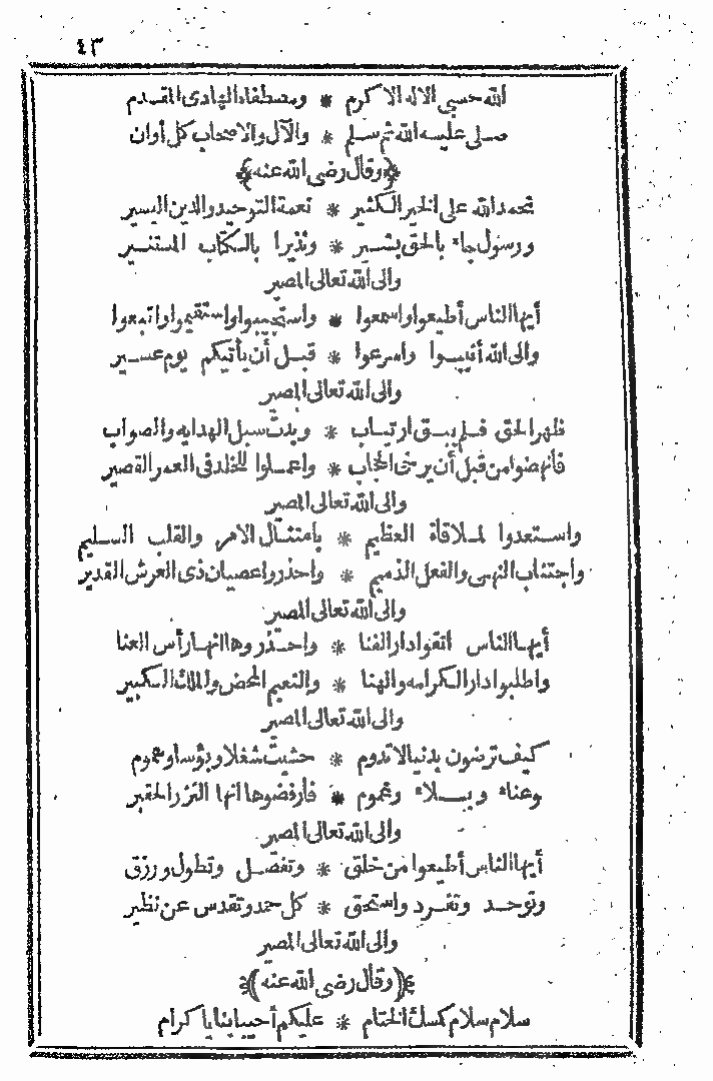 ٤٣
الله حسبى الاله الاكرم * ومصطفاه الهادى المقدم
صلى عليه الله ثم سلم * والآل والاصحاب كل أوان
﴿وقال رضى الله عنه﴾
نحمد الله على الخير الكثير * نعمة التوحيد والدين اليسير
ورسول جاء بالحق بشير * ونذيرا بالكتاب المستنير
والى الله تعالى المصير
أيها الناس أطيعوا واسمعوا * واستجيبوا واستقيموا واتبعوا
والى الله أنيبوا واسرعوا * قبل أن يأتيكم يوم عسير
والى الله تعالى المصير
ظهر الحق فلم يبق ارتياب * وبدت سبل الهدايه والصواب
فانهضوا من قبل أن يرخى الحجاب * واعملوا للخلد فى العمر القصير
والى الله تعالى المصير
واستعدوا لملاقاة العظيم * بامتثال الامر والقلب السليم
واجتناب النهى والفعل الذميم * واحذروا عصيان ذى العرش القدير
والى الله تعالى المصير
أيها الناس اتقوا دار الفنا * واحذروها انها رأس العنا
واطلبوا دار الكرامه والهنا * والنعيم المحض والملك الكبير
والى الله تعالى المصير
كيف ترضون بدنيا لاتدوم * حشيت شغلا وبؤسا وهموم
وعناء وبلاء وغموم * فارفضوها انها النزر الحقير
والى الله تعالى المصير
أيها الناس أطيعوا من خلق * وتفضل وتطول ورزق
وتوحد وتفرد واستحق * كل حمد وتقدس عن نظير
والى الله تعالى المصير
﴿وقال رضى الله عنه﴾
سلام سلام كمسك الختام * عليكم أحيبابنا ياكرام